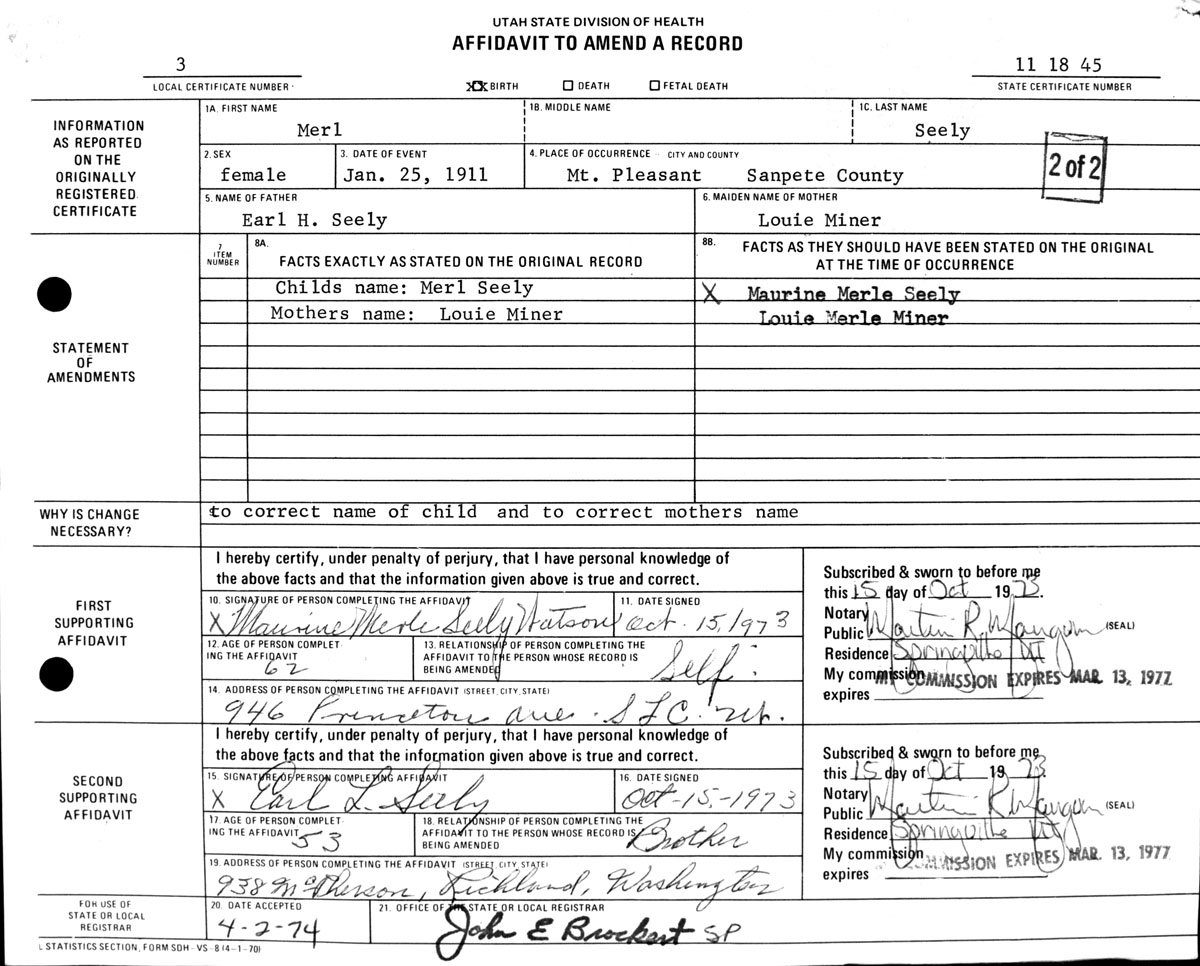 UTAH STATE DIVISION OF HEALTH
AFFIDAVIT TO AMEND A RECORD
3
LOCAL CERTIFICATE NUMBER
XX BIRTH ☐ DEATH ☐ FETAL DEATH
11 18 45
STATE CERTIFICATE NUMBER
INFORMATION AS REPORTED ON THE ORIGINALLY REGISTERED CERTIFICATE
1A. FIRST NAME 1B. MIDDLE NAME 1C. LAST NAME
Merl Seely
2. SEX 3. DATE OF EVENT 4. PLACE OF OCCURRENCE - CITY AND COUNTY
female Jan. 25, 1911 Mt. Pleasant Sanpete County
2 of 2
5. NAME OF FATHER 6. MAIDEN NAME OF MOTHER
Earl H. Seely Louie Miner
STATEMENT OF AMENDMENTS
7 ITEM NUMBER
8A. FACTS EXACTLY AS STATED ON THE ORIGINAL RECORD
8B. FACTS AS THEY SHOULD HAVE BEEN STATED ON THE ORIGINAL AT THE TIME OF OCCURRENCE
Childs name: Merl Seely X Maurine Merle Seely
Mothers name: Louie Miner Louie Merle Miner
WHY IS CHANGE NECESSARY?
to correct name of child and to correct mothers name
FIRST SUPPORTING AFFIDAVIT
I hereby certify, under penalty of perjury, that I have personal knowledge of
the above facts and that the information given above is true and correct.
10. SIGNATURE OF PERSON COMPLETING THE AFFIDAVIT 11. DATE SIGNED
X Maurine Merle Seely Watson Oct. 15, 1973
12. AGE OF PERSON COMPLETING THE AFFIDAVIT
62
13. RELATIONSHIP OF PERSON COMPLETING THE AFFIDAVIT TO THE PERSON WHOSE RECORD IS BEING AMENDED
Self
14. ADDRESS OF PERSON COMPLETING THE AFFIDAVIT (STREET, CITY, STATE)
946 Princeton ave. S L C. Ut.
Subscribed & sworn to before me
this 15 day of Oct 1973.
Notary
Public Martin R. Mangum (SEAL)
Residence Springville UT
My commission
expires
MY COMMISSION EXPIRES MAR. 13, 1977
SECOND SUPPORTING AFFIDAVIT
I hereby certify, under penalty of perjury, that I have personal knowledge of
the above facts and that the information given above is true and correct.
15. SIGNATURE OF PERSON COMPLETING AFFIDAVIT 16. DATE SIGNED
X Earl L. Seely Oct-15,-1973
17. AGE OF PERSON COMPLETING THE AFFIDAVIT
53
18. RELATIONSHIP OF PERSON COMPLETING THE AFFIDAVIT TO THE PERSON WHOSE RECORD IS BEING AMENDED
Brother
19. ADDRESS OF PERSON COMPLETING THE AFFIDAVIT (STREET, CITY, STATE)
938 McPherson, Richland, Washington
Subscribed & sworn to before me
this 15 day of Oct 1973.
Notary
Public Martin R Mangum (SEAL)
Residence Springville UT
My commission
expires
COMMISSION EXPIRES MAR. 13, 1977
FOR USE OF STATE OR LOCAL REGISTRAR
20. DATE ACCEPTED 21. OFFICE OF THE STATE OR LOCAL REGISTRAR
4-2-74 John E Brockert SP
L STATISTICS SECTION, FORM SDH - VS - 8 (4-1-70)